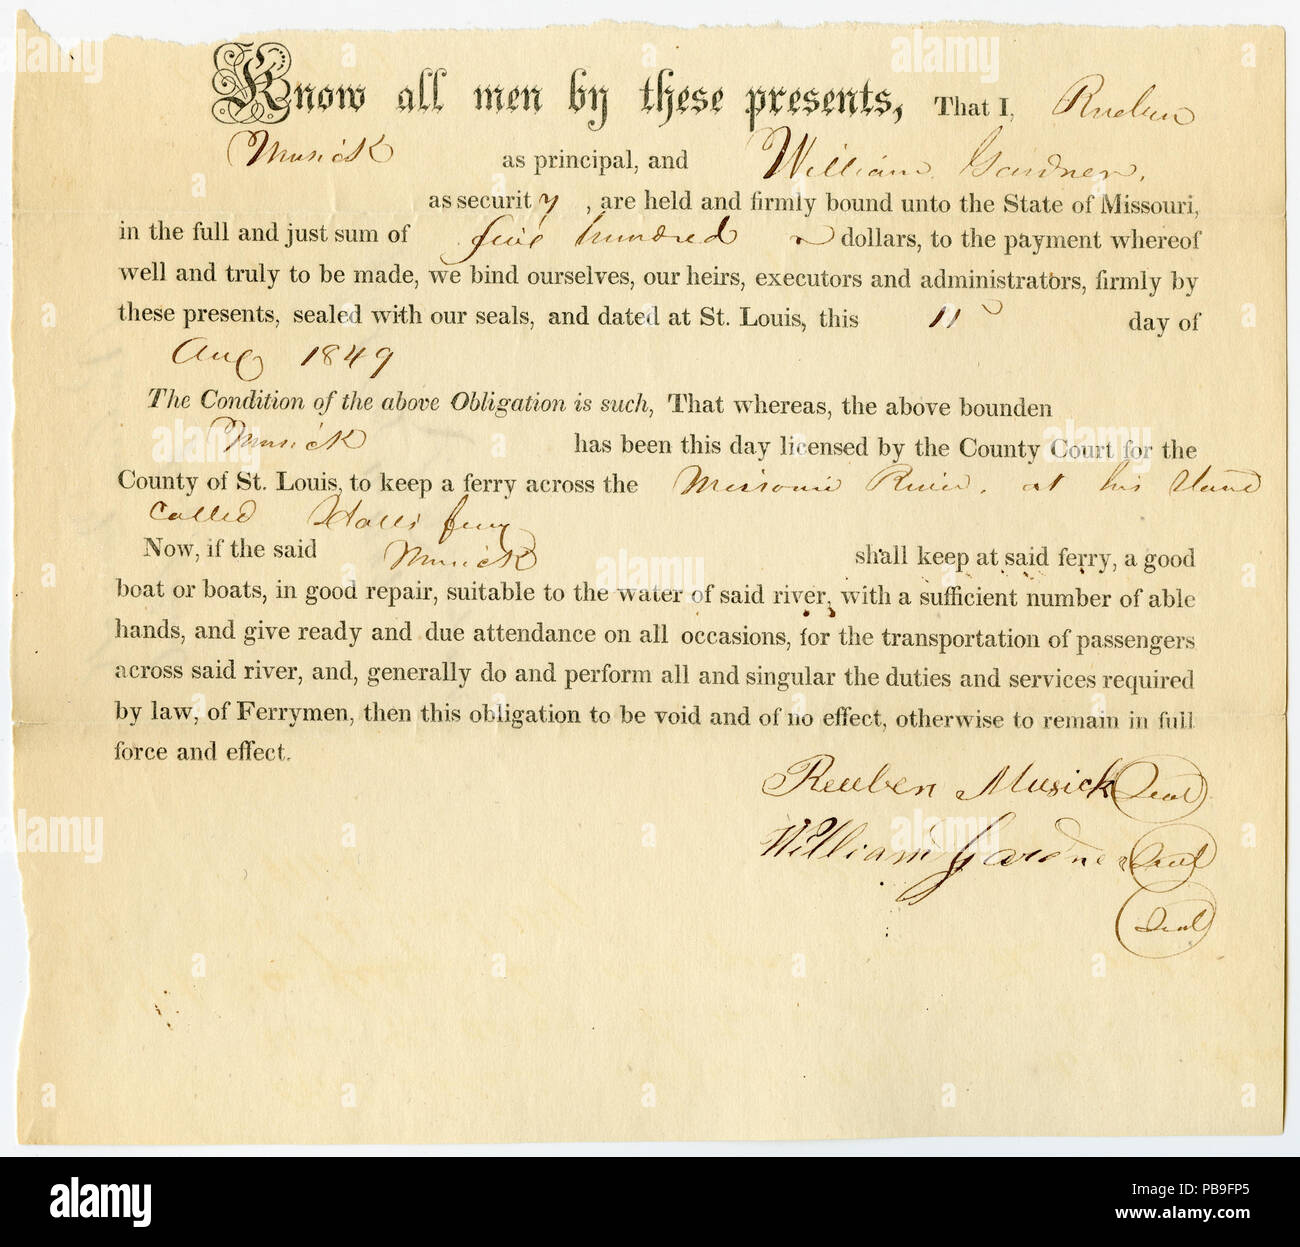 Know all men by these presents, That I, Rueben
Musick as principal, and William Gardner,
as security, are held and firmly bound unto the State of Missouri,
in the full and just sum of five hundred dollars, to the payment whereof
well and truly to be made, we bind ourselves, our heirs, executors and administrators, firmly by
these presents, sealed with our seals, and dated at St. Louis, this 11 day of
Aug 1849
The Condition of the above Obligation is such, That whereas, the above bounden
Musick has been this day licensed by the County Court for the
County of St. Louis, to keep a ferry across the Missouri River, at his stand
called Halls ferry
Now, if the said Musick shall keep at said ferry, a good
boat or boats, in good repair, suitable to the water of said river, with a sufficient number of able
hands, and give ready and due attendance on all occasions, for the transportation of passengers
across said river, and, generally do and perform all and singular the duties and services required
by law, of Ferrymen, then this obligation to be void and of no effect, otherwise to remain in full
force and effect.
Reuben Musick Seal
William Gardner Seal
Seal
alamy
PB9FP5
www.alamy.com